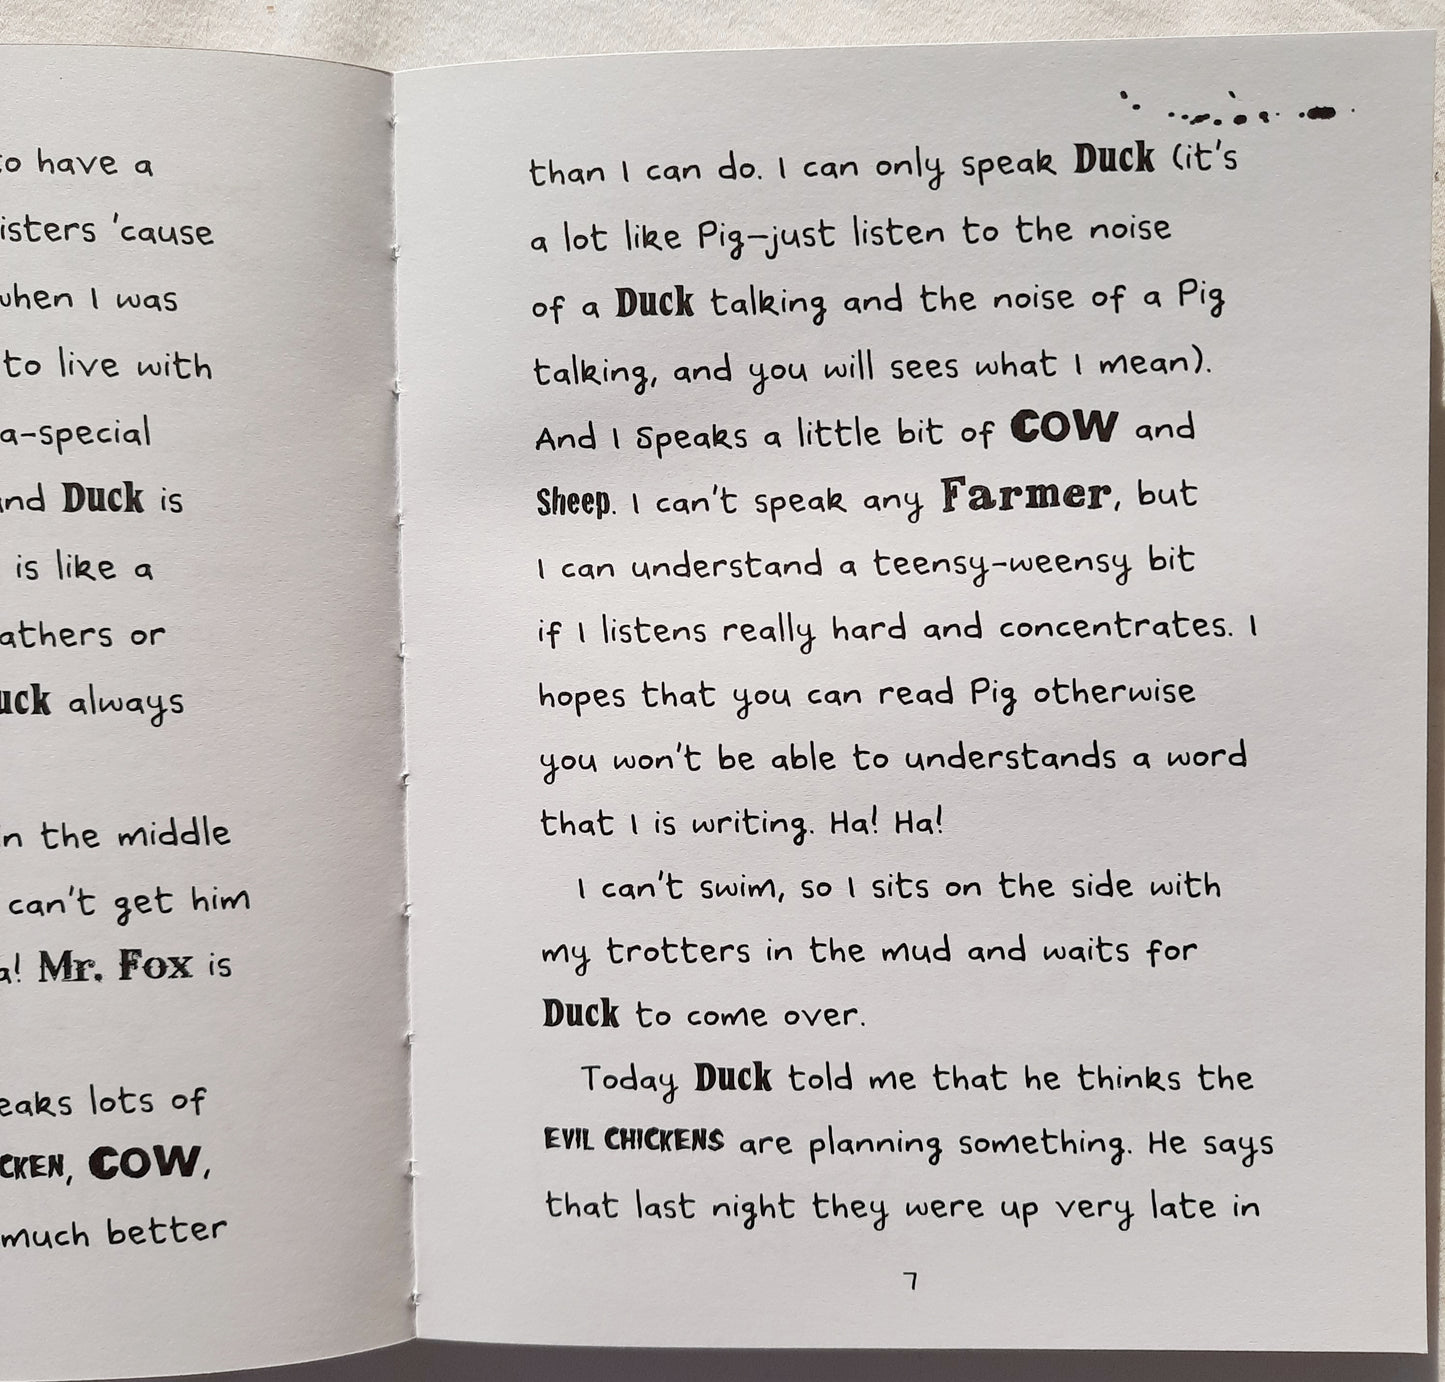 to have a
'cause
when I was
to live with
and Duck is
is like a
or
Duck always
in the middle
can't get him
Mr. Fox is
lots of
COW,
much better
than I can do. I can only speak Duck (it's
a lot like Pig–just listen to the noise
of a Duck talking and the noise of a Pig
talking, and you will sees what I mean).
And I Speaks a little bit of COW and
Sheep. I can't speak any Farmer, but
I can understand a teensy-weensy bit
if I listens really hard and concentrates. I
hopes that you can read Pig otherwise
you won't be able to understands a word
that I is writing. Ha! Ha!
I can't swim, so I sits on the side with
my trotters in the mud and waits for
Duck to come over.
Today Duck told me that he thinks the
EVIL CHICKENS are planning something. He says
that last night they were up very late in
7